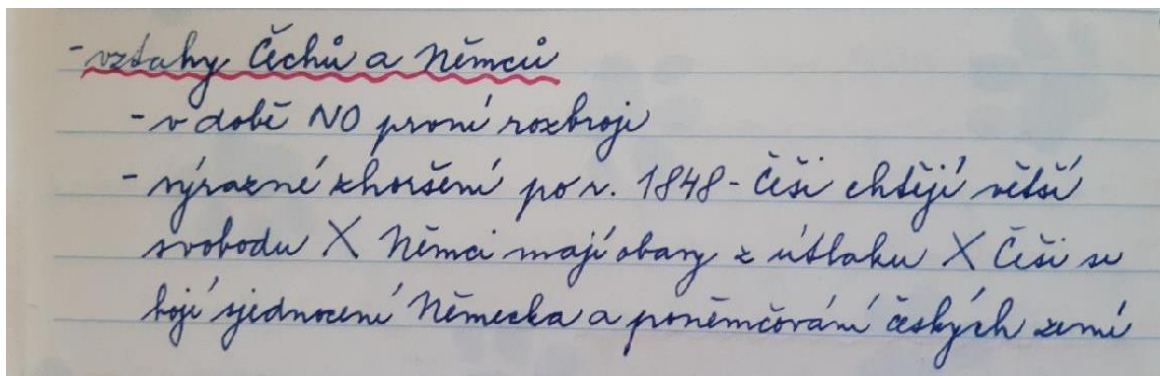 - vztahy Čechů a Němců
- v době NO první rozbroje
- výrazné zhoršení po r. 1848 - Češi chtějí větší
svobodu X Němci mají obavy z útlaku X Češi se
bojí sjednocení Německa a poněmčování českých zemí